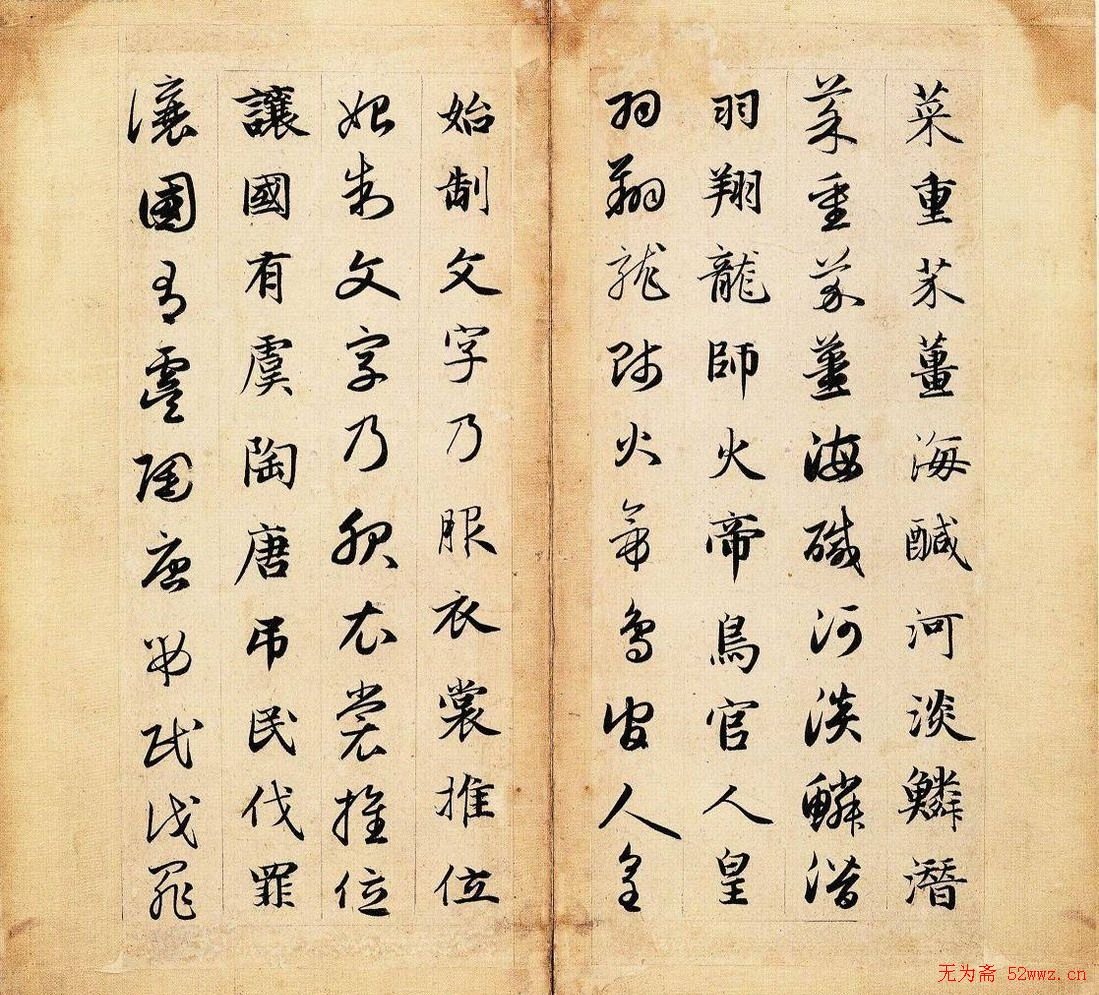 菜重芥薑海醎河淡鱗潛
菜重芥薑海醎河淡鱗潛
羽翔龍師火帝鳥官人皇
羽翔龍師火帝鳥官人皇
始制文字乃服衣裳推位
始制文字乃服衣裳推位
讓國有虞陶唐吊民伐罪
讓國有虞陶唐吊民伐罪
无为斋 52wwz.cn